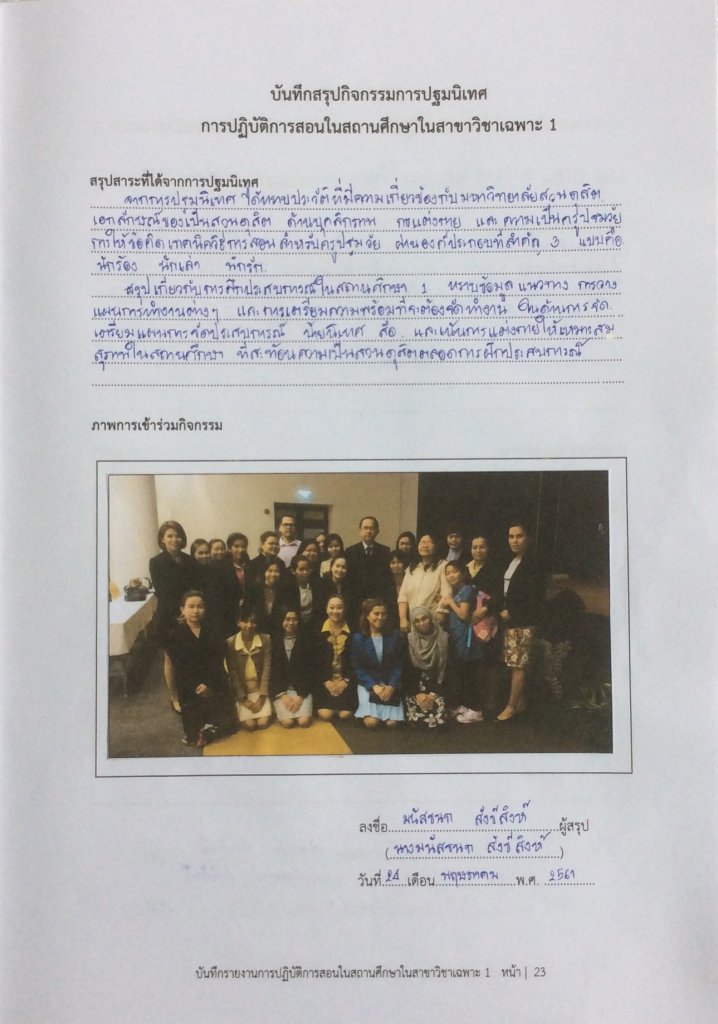 บันทึกสรุปกิจกรรมการปฐมนิเทศ
การปฏิบัติการสอนในสถานศึกษาในสาขาวิชาเฉพาะ 1
สรุปสาระที่ได้จากการปฐมนิเทศ
จากการปฐมนิเทศ ได้ทราบประวัติที่มีความเกี่ยวข้องกับมหาวิทยาลัยสวนดุสิต
เอกลักษณ์ของเป็นสวนดุสิต ด้านบุคลิกภาพ การแต่งกาย และความเป็นครูปฐมวัย
การให้ข้อคิด เทคนิควิธีการสอนสำหรับครูปฐมวัย ผ่านองค์ประกอบที่สำคัญ 3 แบบคือ
นักร้อง นักเล่า นักรัก
สรุปเกี่ยวกับการฝึกประสบการณ์ในสถานศึกษา 1 ทราบข้อมูล แนวทาง การวาง
แผนการทำงานต่างๆ และการเตรียมความพร้อมที่จะต้องจัดทำงาน ในด้านการจัด
เตรียมแผนการจัดประสบการณ์ นิเทศ สื่อ และเน้นการแต่งกายให้เหมาะสม
สุภาพในสถานศึกษา ที่สะท้อนความเป็นสวนดุสิตตลอดการฝึกประสบการณ์
ภาพการเข้าร่วมกิจกรรม
ลงชื่อ มนัสชนก สังข์สิงห์ ผู้สรุป
(นางมนัสชนก สังข์สิงห์)
วันที่ 24 เดือน พฤษภาคม พ.ศ. 2561
บันทึกรายงานการปฏิบัติการสอนในสถานศึกษาในสาขาวิชาเฉพาะ 1 หน้า | 23